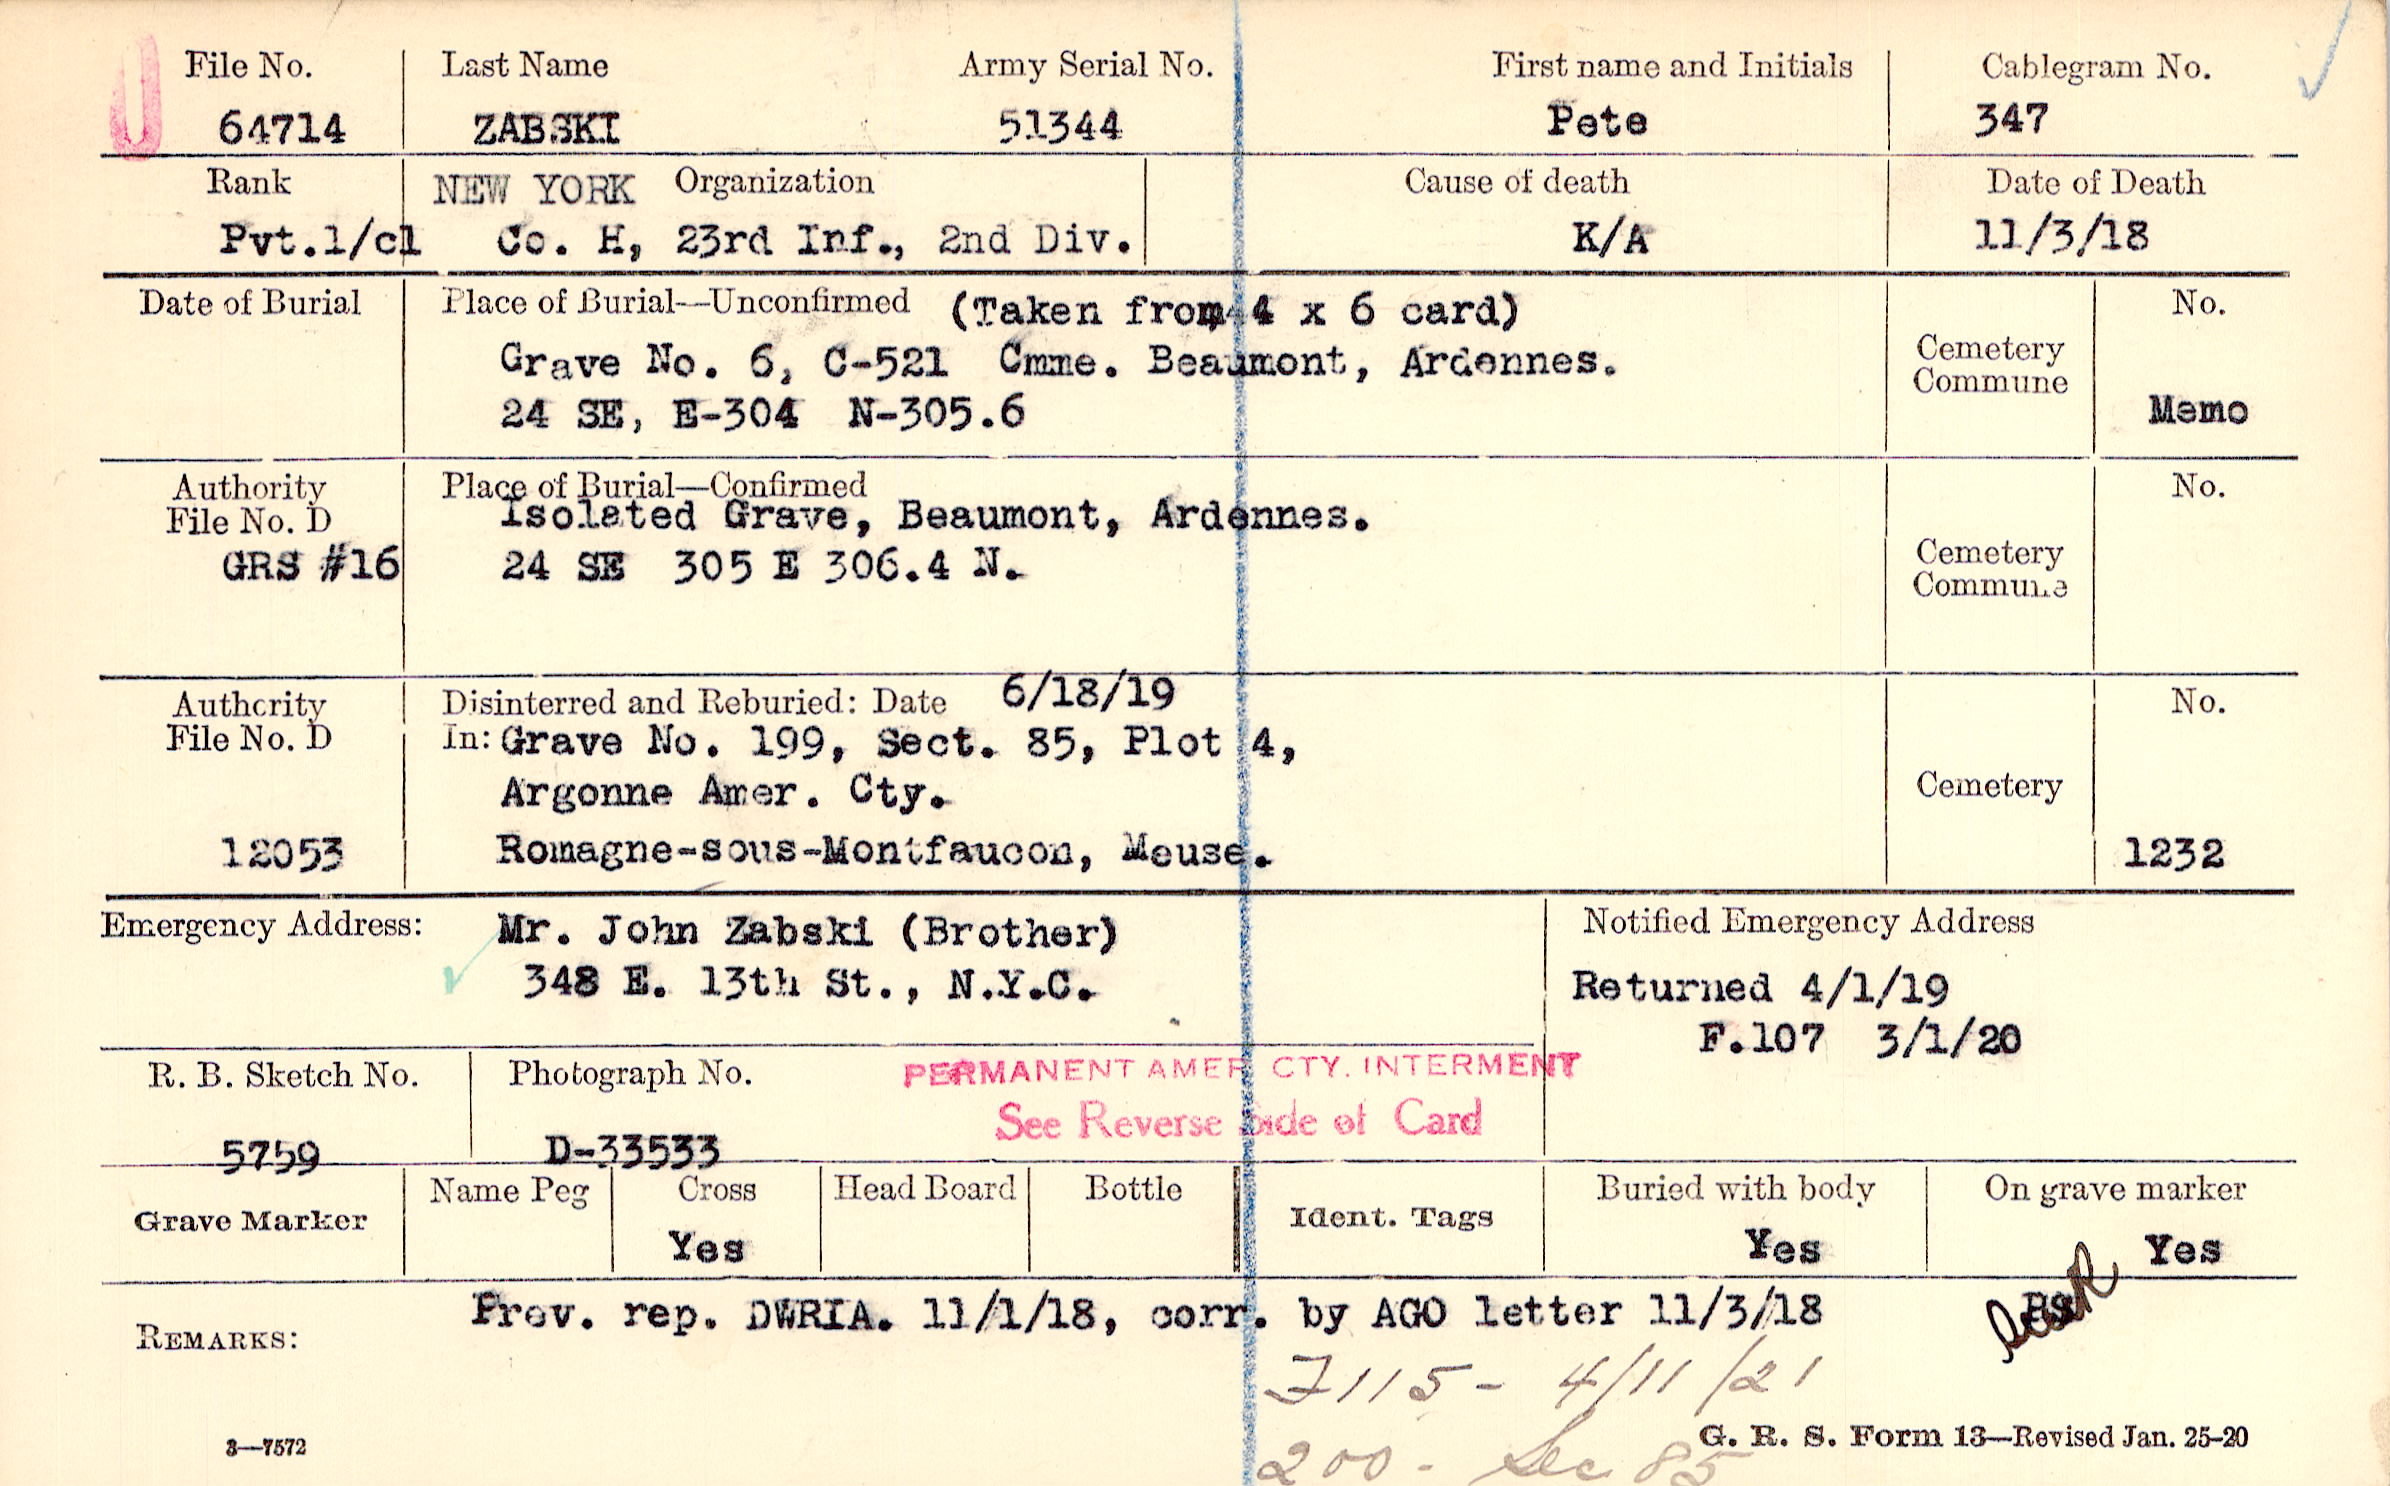 File No. Last Name Army Serial No. First name and Initials Cablegram No.
64714 ZABSKI 51344 Pete 347
Rank NEW YORK Organization Cause of death Date of Death
Pvt.1/cl Co. H, 23rd Inf., 2nd Div. K/A 11/3/18
Date of Burial Place of Burial—Unconfirmed (Taken from 4 x 6 card) No.
Grave No. 6, C-521 Cmne. Beaumont, Ardennes. Cemetery
Commune
24 SE, E-304 N-305.6 Memo
Authority Place of Burial—Confirmed No.
File No. D Isolated Grave, Beaumont, Ardennes.
GRS #16 24 SE 305 E 306.4 N. Cemetery
Commune
Authority Disinterred and Reburied: Date 6/18/19 No.
File No. D In: Grave No. 199, Sect. 85, Plot 4,
Argonne Amer. Cty. Cemetery
12053 Romagne-sous-Montfaucon, Meuse. 1232
Emergency Address: Mr. John Zabski (Brother) Notified Emergency Address
348 E. 13th St., N.Y.C. Returned 4/1/19
F.107 3/1/20
R. B. Sketch No. Photograph No. PERMANENT AMER. CTY. INTERMENT
See Reverse Side of Card
5759 D-33533
Grave Marker Name Peg Cross Head Board Bottle Ident. Tags Buried with body On grave marker
Yes Yes Yes
REMARKS: Prev. rep. DWRIA. 11/1/18, corr. by AGO letter 11/3/18
F115 - 4/11/21
3—7572 G. R. S. Form 13—Revised Jan. 25-20
200 - Sec 85